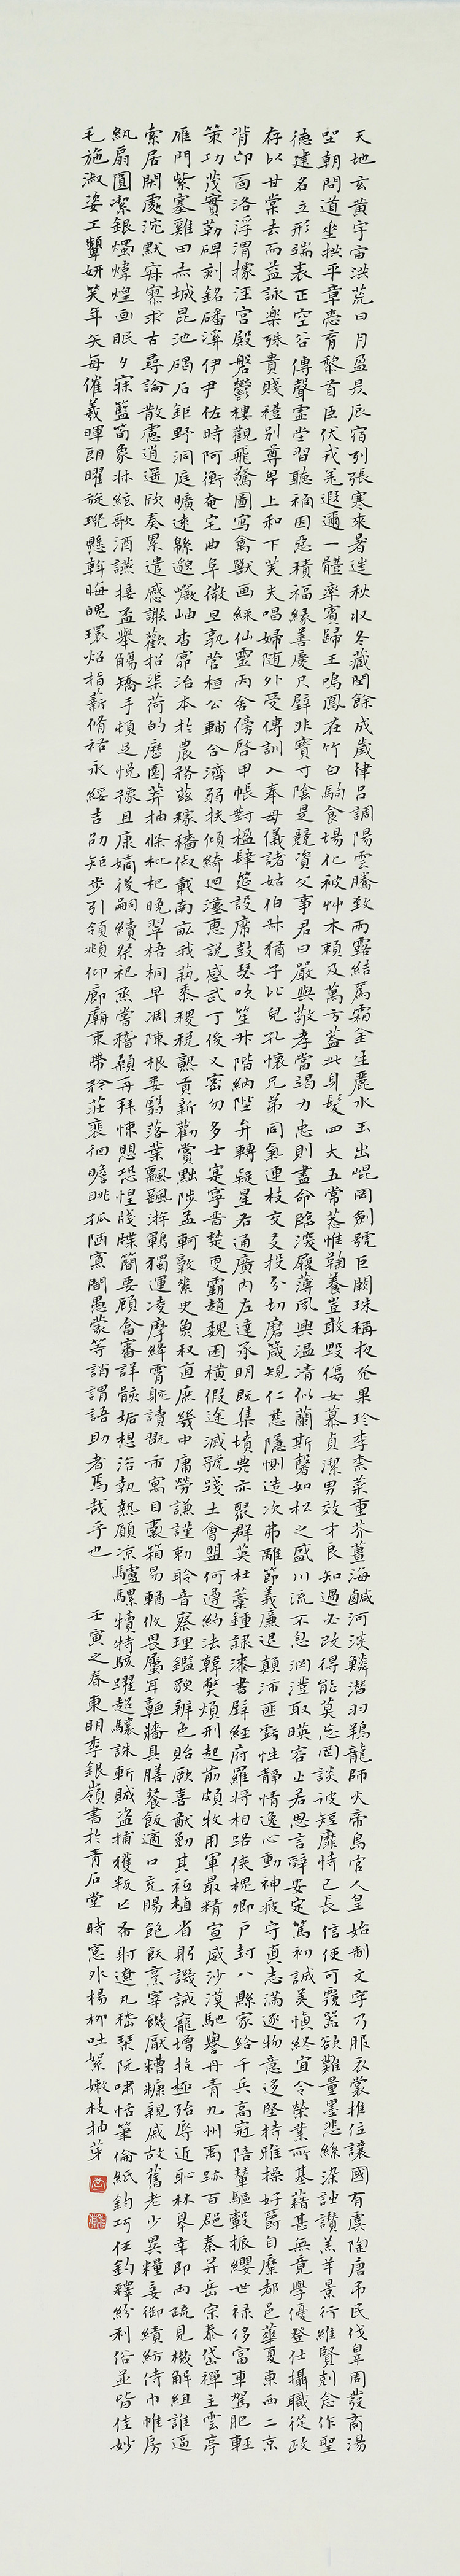 天地玄黄宇宙洪荒日月盈昃辰宿列張寒來暑往秋收冬藏閏餘成歲律吕調陽雲騰致雨露結爲霜金生麗水玉出崐岡劍號巨闕珠稱夜光果珍李柰菜重芥薑海鹹河淡鱗潛羽翔龍師火帝鳥官人皇始制文字乃服衣裳推位讓國有虞陶唐吊民伐辠周發商湯
坐朝問道垂拱平章愛育黎首臣伏戎羌遐邇一體率賓歸王鳴鳳在竹白駒食場化被艸木賴及萬方蓋此身髮四大五常恭惟鞠養豈敢毀傷女慕貞潔男效才良知過必改得能莫忘罔談彼短靡恃己長信使可覆器欲難量墨悲絲染詩讚羔羊景行維賢剋念作聖
德建名立形端表正空谷傳聲虛堂習聽禍因惡積福緣善慶尺璧非寶寸陰是競資父事君曰嚴與敬孝當竭力忠則盡命臨深履薄夙興温凊似蘭斯馨如松之盛川流不息淵澄取暎容止若思言辭安定篤初誠美慎終宜令榮業所基藉甚無竟學優登仕攝職從政
存以甘棠去而益詠樂殊貴賤禮别尊卑上和下芺夫唱婦隨外受傅訓入奉母儀諸姑伯叔猶子比兒孔懷兄弟同氣連枝交友投分切磨箴規仁慈隱惻造次弗離節義廉退顛沛匪虧性静情逸心動神疲守真志滿逐物意迻堅持雅操好爵自縻都邑華夏東西二京
背邙面洛浮渭據涇宫殿磐鬱樓觀飛驚圖寫禽獸画綵仙靈丙舍傍啓甲帳對楹肆筵設席鼓瑟吹笙升階納陛弁轉疑星右通廣内左達承明既集墳典亦聚群英杜藁鍾隸漆書壁經府羅將相路俠槐卿户封八縣家給千兵高冠陪輦驅轂振纓世禄侈富車駕肥輕
策功茂實勒碑刻銘磻溪伊尹佐時阿衡奄宅曲阜微旦孰營桓公輔合濟弱扶傾綺迴漢惠説感武丁俊乂密勿多士寔寧晋楚更霸趙魏困橫假途滅虢踐土會盟何遵約法韓弊煩刑起翦頗牧用軍最精宣威沙漠馳譽丹青九州禹跡百郡秦并岳宗泰岱禪主雲亭
雁門紫塞雞田赤城昆池碣石鉅野洞庭曠遠綿邈巖岫杳冥治本於農務兹稼穡俶載南畝我藝黍稷稅熟貢新勸賞黜陟孟軻敦素史魚秉直庶幾中庸勞謙謹勅聆音察理鑑貌辨色貽厥嘉猷勉其祗植省躬譏誡寵增抗極殆辱近恥林皋幸即兩疏見機解組誰逼
索居閑處沈默寂寥求古尋論散慮逍遥欣奏累遣慼謝歡招渠荷的歷園莽抽條枇杷晚翠梧桐早凋陳根委翳落葉飄颻游鵾獨運凌摩絳霄耽讀翫市寓目囊箱易輶攸畏屬耳垣牆具膳餐飯適口充腸飽飫烹宰饑厭糟糠親戚故舊老少異糧妾御績紡侍巾帷房
紈扇圓潔銀燭煒煌画眠夕寐籃筍象牀絃歌酒讌接盃舉觴矯手頓足悦豫且康嫡後嗣續祭祀烝嘗稽顙再拜悚懼恐惶牋牒簡要顧答審詳骸垢想浴執熱願凉驢騾犢特駭躍超驤誅斬賊盜捕獲叛亡布射遼丸嵇琴阮嘯恬筆倫紙鈞巧任釣釋紛利俗並皆佳妙
毛施淑姿工顰妍笑年矢每催羲暉朗曜旋璣懸斡晦魄環炤指薪脩祜永綏吉劭矩步引領俯仰廊廟束帶矜莊裵徊瞻眺孤陋寡聞愚蒙等誚謂語助者焉哉乎也 壬寅之春東明李銀嶺書於青石堂時窓外楊柳吐絮嫩枝抽芽